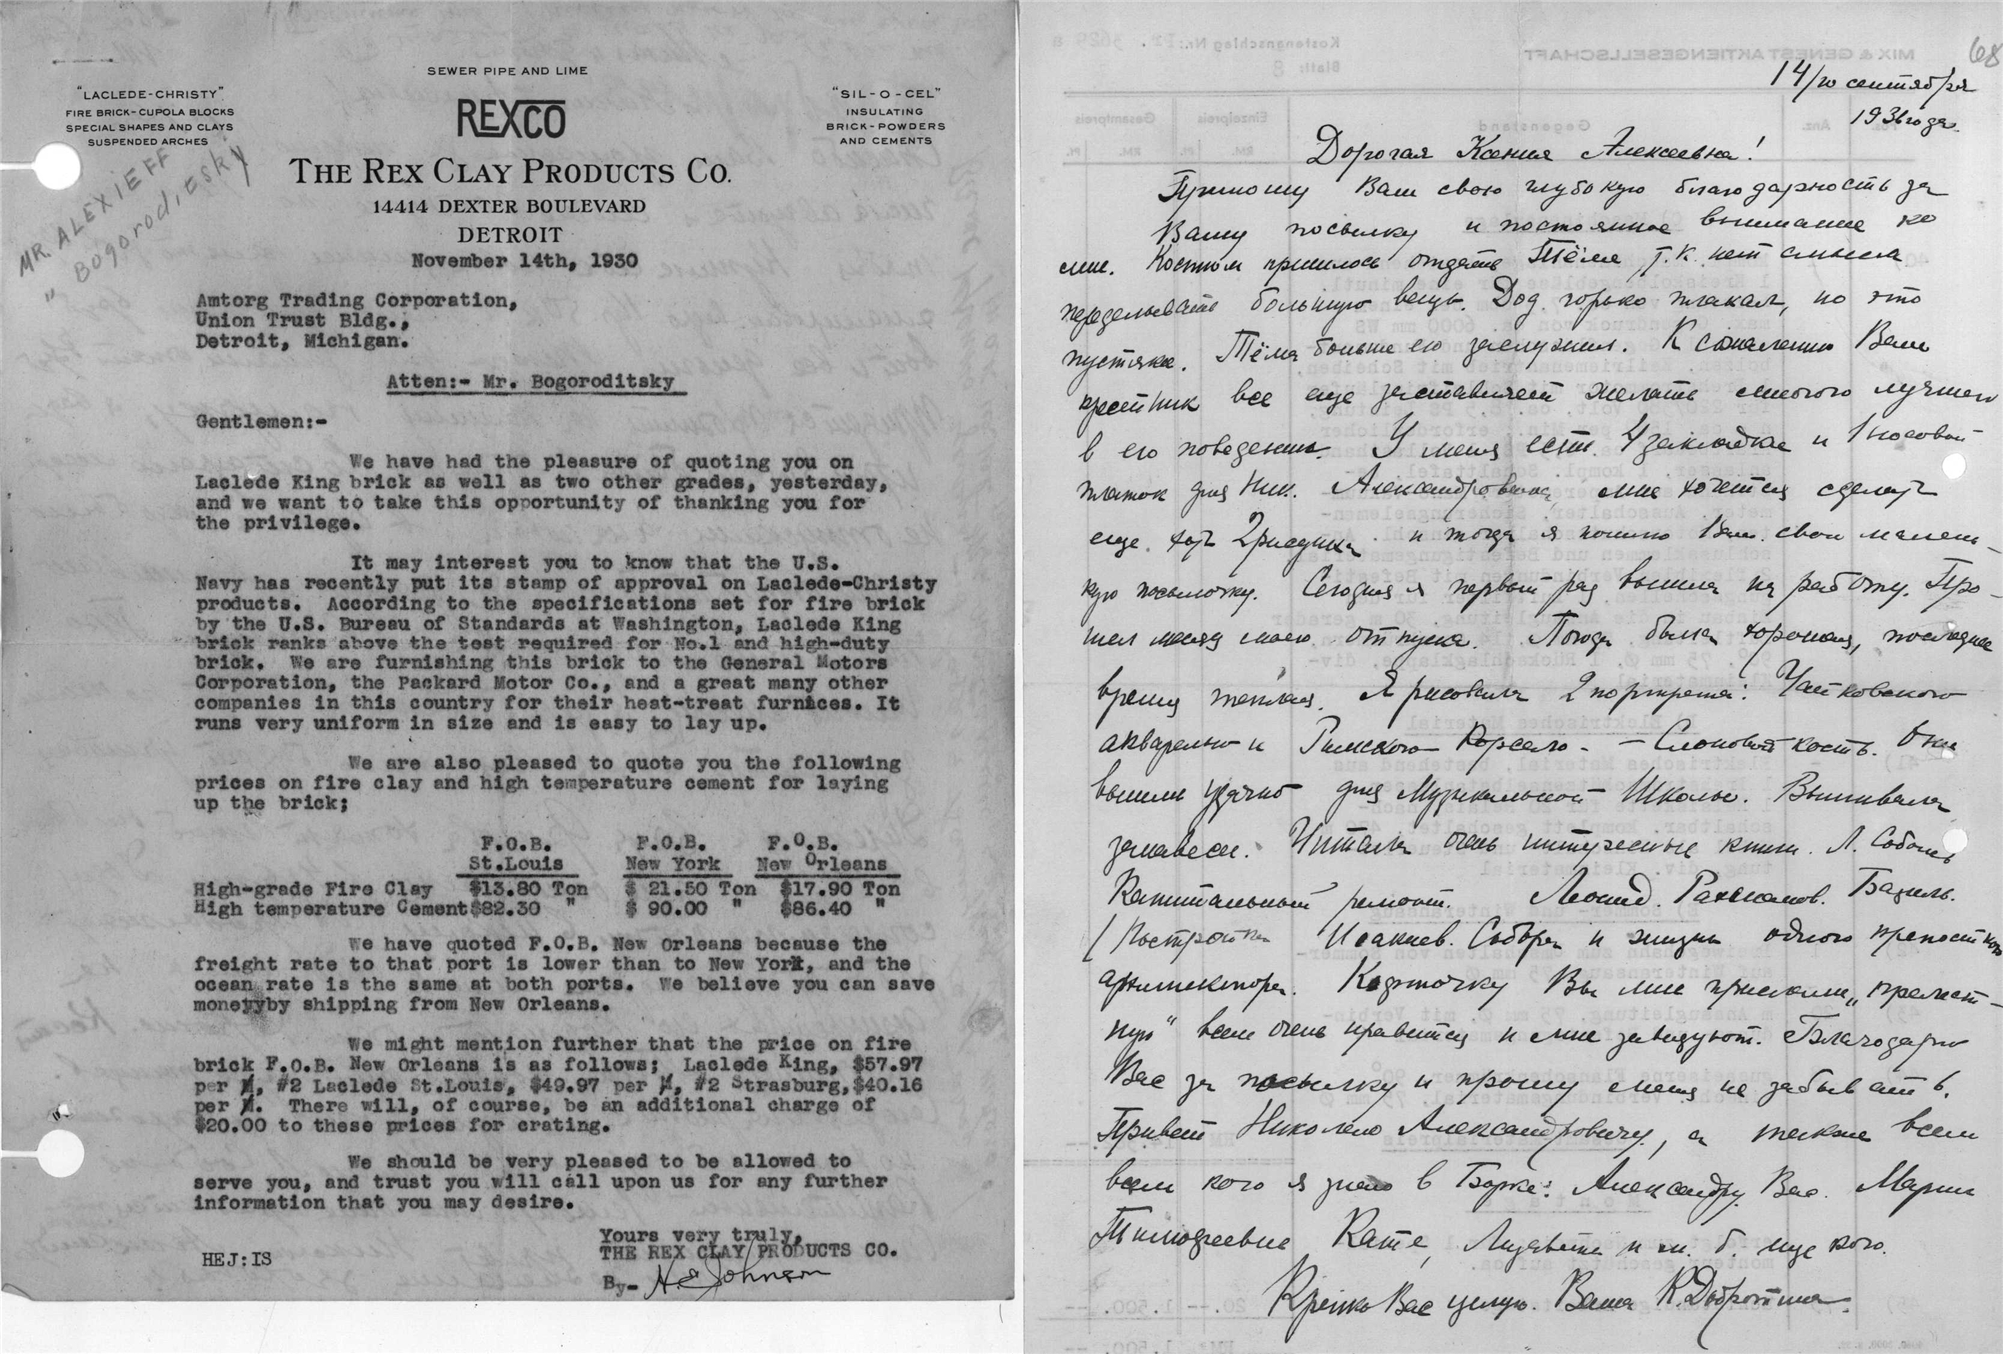 SEWER PIPE AND LIME
"LACLEDE-CHRISTY"
FIRE BRICK-CUPOLA BLOCKS
SPECIAL SHAPES AND CLAYS
SUSPENDED ARCHES
REXCO
"SIL-O-CEL"
INSULATING
BRICK-POWDERS
AND CEMENTS
THE REX CLAY PRODUCTS CO.
14414 DEXTER BOULEVARD
DETROIT
MR. ALEXIEFF
" Bogorodiesky
November 14th, 1930
Amtorg Trading Corporation,
Union Trust Bldg.,
Detroit, Michigan.
Atten:- Mr. Bogoroditsky
Gentlemen:-
We have had the pleasure of quoting you on
Laclede King brick as well as two other grades, yesterday,
and we want to take this opportunity of thanking you for
the privilege.
It may interest you to know that the U.S.
Navy has recently put its stamp of approval on Laclede-Christy
products. According to the specifications set for fire brick
by the U.S. Bureau of Standards at Washington, Laclede King
brick ranks above the test required for No.1 and high-duty
brick. We are furnishing this brick to the General Motors
Corporation, the Packard Motor Co., and a great many other
companies in this country for their heat-treat furnaces. It
runs very uniform in size and is easy to lay up.
We are also pleased to quote you the following
prices on fire clay and high temperature cement for laying
up the brick;
F.O.B. F.O.B. F.O.B.
St.Louis New York New Orleans
High-grade Fire Clay $13.80 Ton $ 21.50 Ton $17.90 Ton
High temperature Cement $82.30 " $ 90.00 " $86.40 "
We have quoted F.O.B. New Orleans because the
freight rate to that port is lower than to New York, and the
ocean rate is the same at both ports. We believe you can save
moneyyby shipping from New Orleans.
We might mention further that the price on fire
brick F.O.B. New Orleans is as follows; Laclede King, $57.97
per M, #2 Laclede St.Louis, $49.97 per M, #2 Strasburg,$40.16
per M. There will, of course, be an additional charge of
$20.00 to these prices for crating.
We should be very pleased to be allowed to
serve you, and trust you will call upon us for any further
information that you may desire.
Yours very truly,
THE REX CLAY PRODUCTS CO.
HEJ:IS
By- H.E.Johnson
68
14/го сентября
1936 года.
Дорогая Ксения Алексеевна!
Приношу Вам свою глубокую благодарность за
Вашу посылку и постоянное внимание ко
мне. Костюм пришлось отдать Тёме, т.к. нет смысла
переделывать большую вещь. Дод. горько плакал, но это
пустяки. Тёма больше его заслужил. К сожалению Ваш
крестник все еще заставляет желать много лучшего
в его поведении. У меня есть 4 закладки и 1 носовой
платок для Ник. Александровича, мне хочется сделать
еще хоть 2 рисунка и тогда я пошлю Вам свою малень-
кую посылочку. Сегодня я первый раз вышла на работу. Про-
шел месяц моего отпуска. Погода была хорошая, последнее
время теплая. Я рисовала 2 портрета: Чайковского
акварелью и Римского Корсако- - Слоновой кость. Они
вышли удачно для Музыкальной Школы. Вышивала
занавеси. Читала очень интересные книги. Л. Соболев
Капитальный ремонт. Леонид. Рахманов. Базиль.
/Постройка Исакиев. Собора и жизнь одного крепостного
архитектора. Козыночку Вы мне прислали „прелест-
ную" всем очень нравится и мне завидуют. Благодарю
Вас за посылку и прошу меня не забывать.
Привет Николаю Александровичу, а также всем
всем кого я знаю в Борке: Александру Вас. Марии
Тимофеевне Кате, Лизавете и м. б. еще кого.
Крепко Вас целую. Ваша К.Добротина.